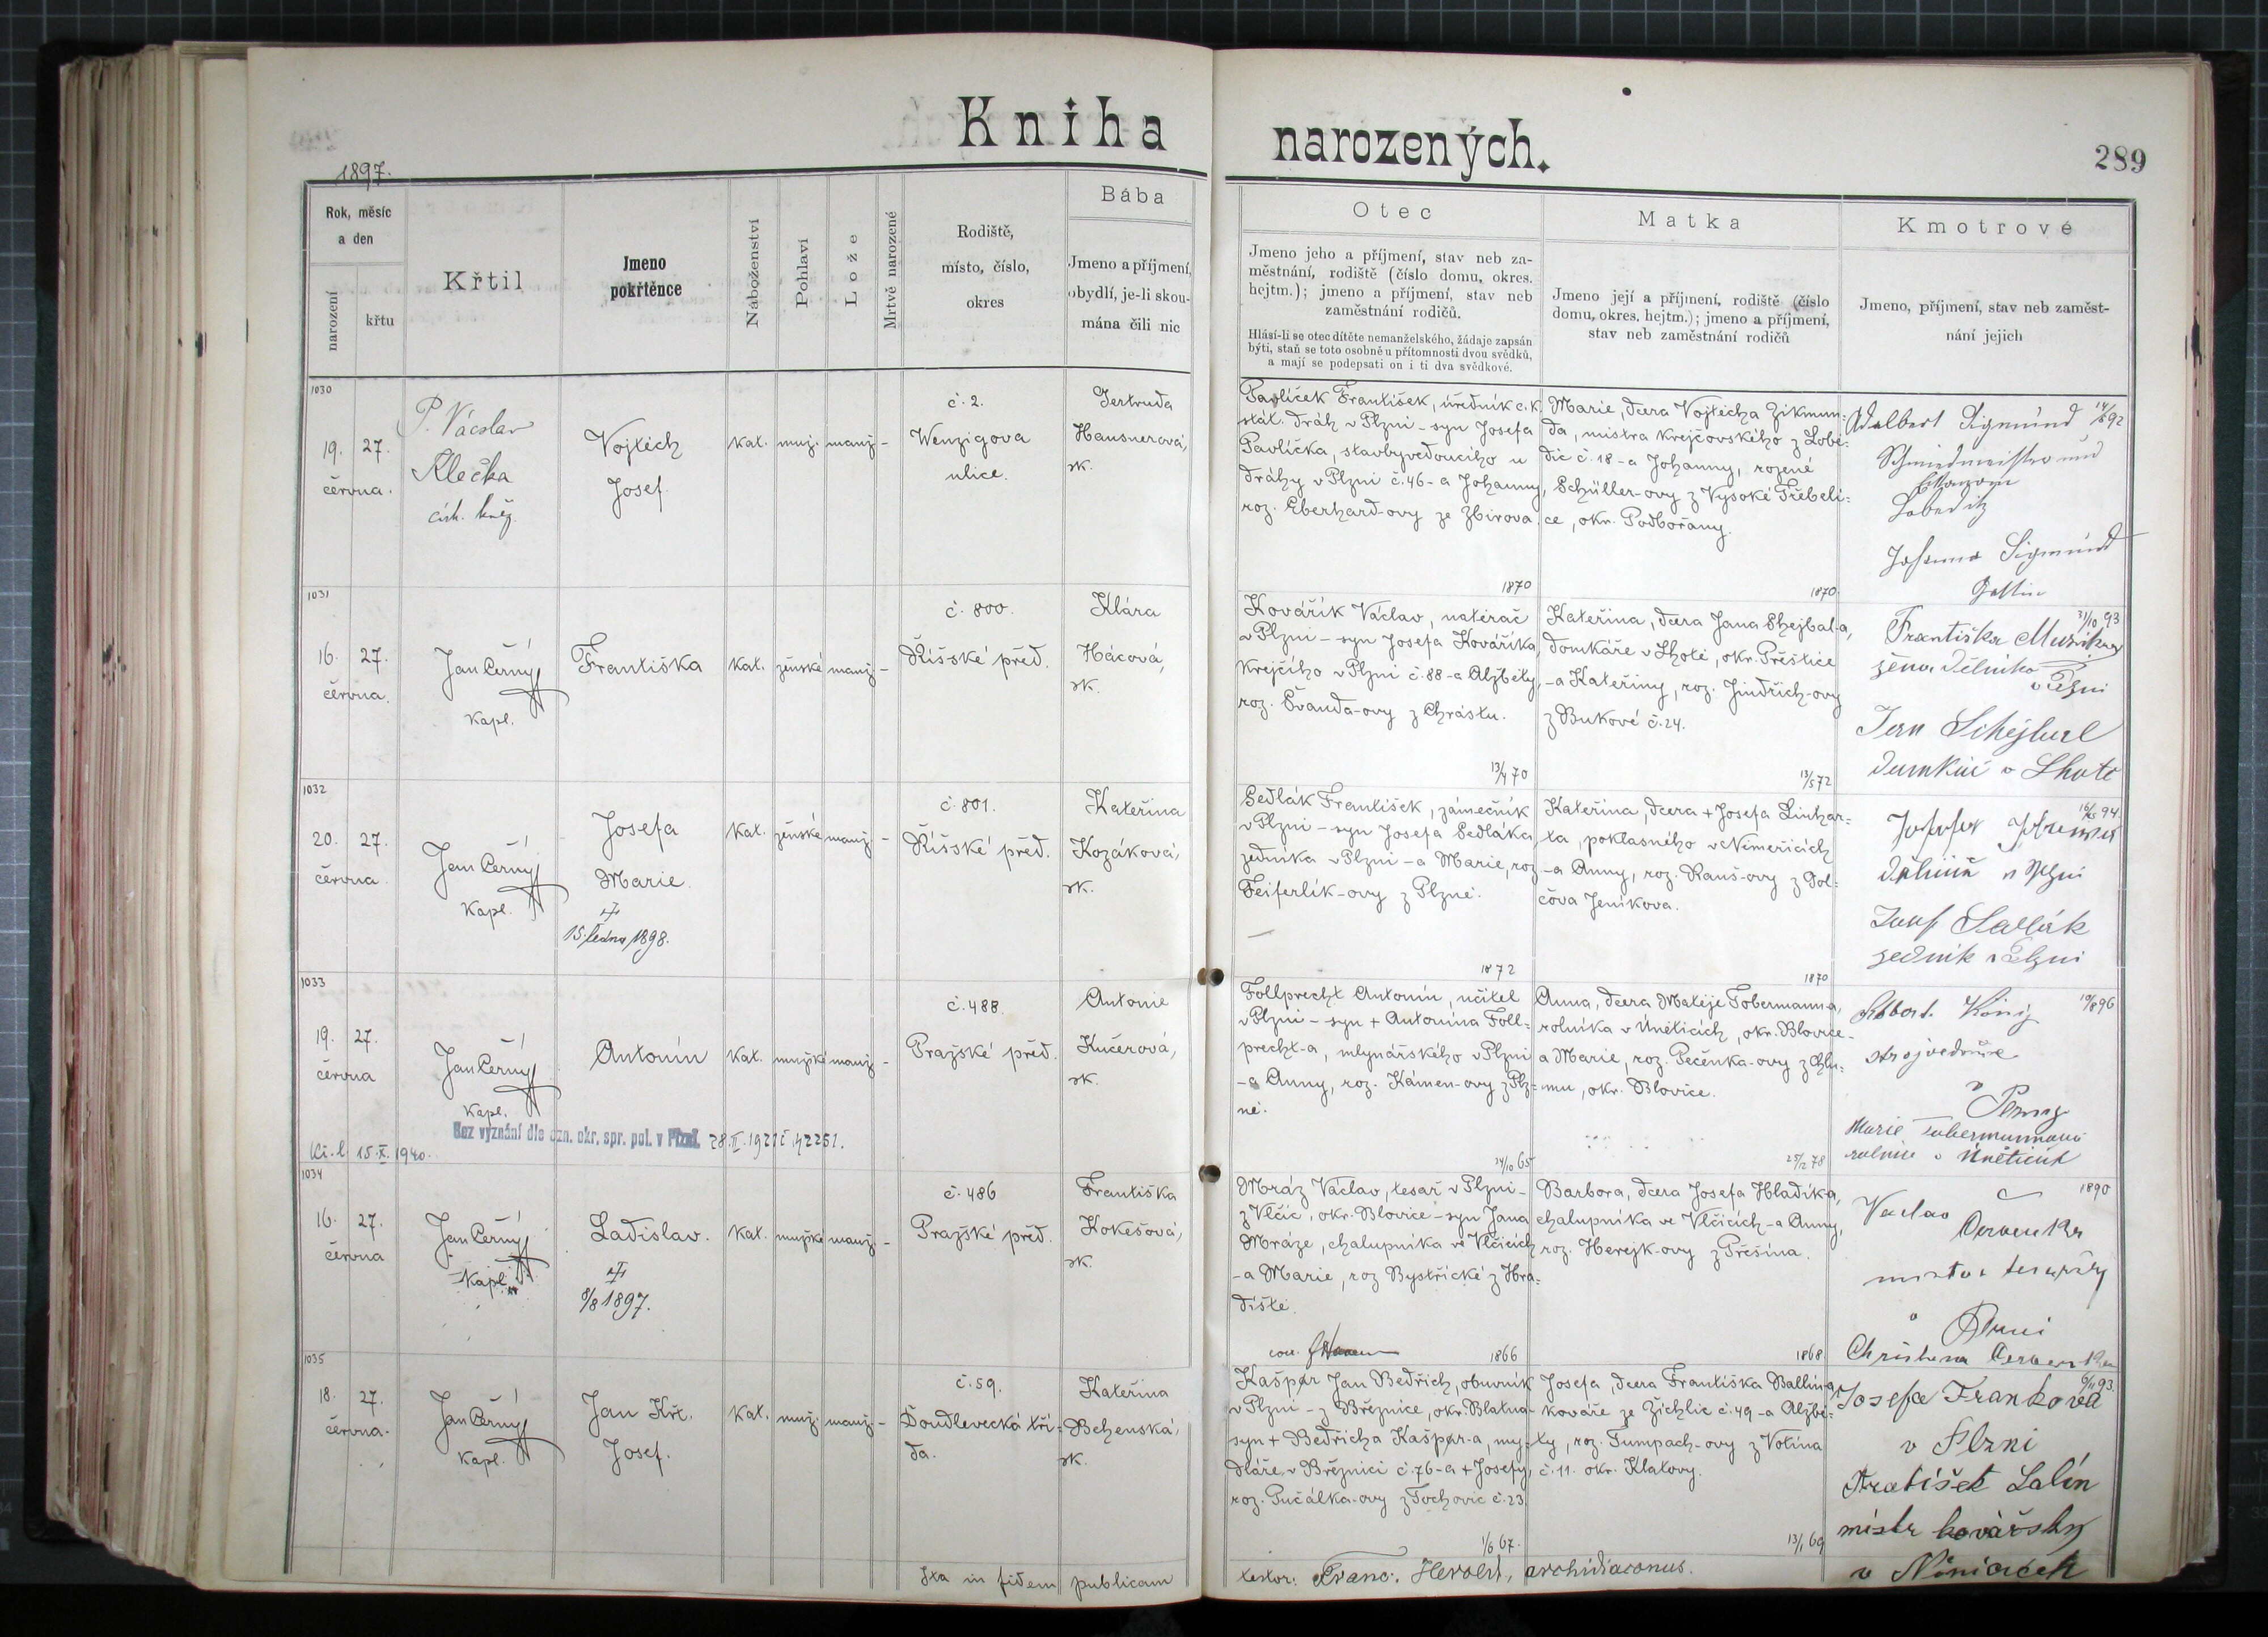 Kniha narozených.
289
1897.
Rok, měsíc
a den
narození
křtu
Křtil
Jmeno
pokřtěnce
Náboženství
Pohlaví
Lože
Mrtvě narozené
Rodiště,
místo, číslo,
okres
Bába
Jmeno a příjmení,
obydlí, je-li skou-
mána čili nic
Otec
Jmeno jeho a příjmení, stav neb za-
městnání, rodiště (číslo domu, okres.
hejtm.); jmeno a příjmení, stav neb
zaměstnání rodičů.
Hlásí-li se otec dítěte nemanželského, žádaje zapsán
býti, staň se toto osobně u přítomnosti dvou svědků,
a mají se podepsati on i ti dva svědkové.
Matka
Jmeno její a příjmení, rodiště (číslo
domu, okres. hejtm.); jmeno a příjmení,
stav neb zaměstnání rodičů
Kmotrové
Jmeno, příjmení, stav neb zaměst-
nání jejich
1030
19. 27.
června.
P. Václav
Klečka
círk. kněz
Vojtěch
Josef.
kat. muž. manž. -
č. 2.
Wenzigova
ulice.
Gertruda
Hausnerová,
zk.
Pavlíček František, úředník c.k.
stát. drah v Plzni - syn Josefa
Pavlíčka, stavbyvedoucího u
dráhy v Plzni č. 46 - a Johanny,
roz. Eberhard-ovy ze Zbirova.
1870
Marie, dcera Vojtěcha Zikmun-
da, mistra krejčovského z Lobě-
dic č. 18 - a Johanny, rozené
Schüller-ovy z Vysoké Třebeli-
ce, okr. Podbořany.
1870
Adalbert Sigmund
Schmiedmeister und
Lobeditz
Johanna Sigmund
Gattin
1031
16. 27.
června.
Jan Černý
kapl.
Františka
kat. ženské manž. -
č. 800.
Říšské před.
Klára
Hácová,
zk.
Kovářík Václav, natěrač
v Plzni - syn Josefa Kováříka,
krejčího v Plzni č. 88 - a Alžběty,
roz. Švanda-ovy z Chrástu.
13/4 70
Kateřina, dcera Jana Shejbal-a,
domkáře v Lhotě, okr. Přeštice
- a Kateřiny, roz. Jindřich-ovy
z Bukové č. 24.
13/5 72
31/10 93
Františka
žena dělníka
v Plzni
Jan
v Lhotě
1032
20. 27.
června
Jan Černý
kapl.
Josefa
Marie.
15. ledna 1898.
kat. ženské manž. -
č. 801.
Říšské před.
Kateřina
Kozáková,
zk.
Sedlák František, zámečník
v Plzni - syn Josefa Sedláka,
zedníka v Plzni - a Marie, roz.
Feiferlík-ovy z Plzně.
1872
Kateřina, dcera + Josefa Linhar-
ta, poklasného v Němeřicích
- a Anny, roz. Rauš-ovy z Gol-
čova Jeníkova.
1870
Josef Sedlák
zedník v Plzni
1033
19. 27.
června
Jan Černý
kapl.
Antonín
kat. mužské manž. -
č. 488.
Pražské před.
Antonie
Kučerová,
zk.
Follprecht Antonín, učitel
v Plzni - syn + Antonína Foll-
precht-a, mlynářského v Plzni
- a Anny, roz. Kámen-ovy z Plz-
ně.
24/10 65
Anna, dcera Matěje Tobermanna,
rolníka v Úněticích, okr. Blovice -
a Marie, roz. Pečenka-ovy z Chlu-
mu, okr. Blovice.
25/12 78
10/8 96
König
strojvedoucí
v
Marie Tobermannová
v Úněticích
Bez vyznání dle ozn. okr. spr. pol. v Plzni. 28. II. 1921 č. 42251.
15. X. 1940.
1034
16. 27.
června
Jan Černý
kapl.
Ladislav.
8/8 1897.
kat. mužské manž. -
č. 486
Pražské před.
Františka
Kokešová,
zk.
Mráz Václav, tesař v Plzni -
z Vlčic, okr. Blovice - syn Jana
Mráze, chalupníka ve Vlčicích
- a Marie, roz. Bystřické z Hra-
diště.
1866
Barbora, dcera Josefa Hladíka,
chalupníka ve Vlčicích - a Anny,
roz. Herejk-ovy z Přešína.
1868
1890
Vaclav
Červenka
mistr tesařský
v Plzni
Christina Červenka
1035
18. 27.
června.
Jan Černý
kapl.
Jan Křt.
Josef.
kat. muž. manž. -
č. 59.
Doudlevecká tří-
da.
Kateřina
Bchenská,
zk.
Kašpar Jan Bedřich, obuvník
v Plzni - z Březnice, okr. Blatná -
syn + Bedřicha Kašpar-a, my-
dláře v Březnici č. 76 - a + Josefy,
roz. Pučálka-ovy z Tochovic č. 23.
1/6 67.
Josefa, dcera Františka Ballina,
kováře ze Zichlic č. 49 - a Alžbě-
ty, roz. Tumpach-ovy z Votína
č. 11. okr. Klatovy.
13/1 69
6/11 93.
Josefa Franková
v Plzni
František Lalín
mistr kovářský
v
Ita in fidem publicam
testor: Franc. Herold, archidiaconus.